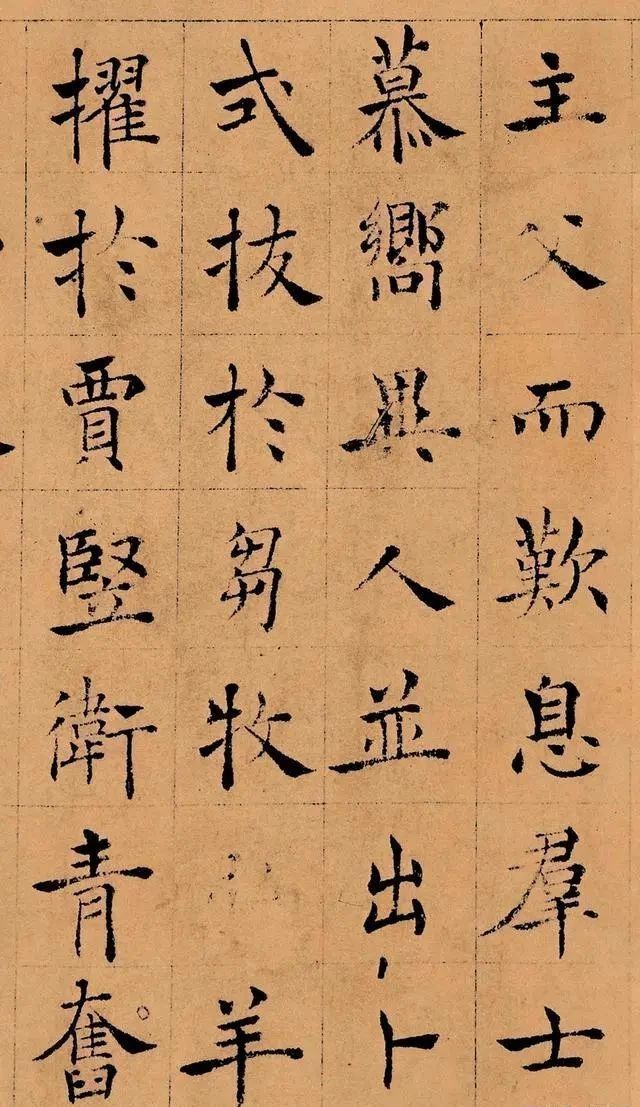 主父而歎息羣士
慕嚮異人並出卜
式抜於芻牧羊
擢於賈豎衛青奮